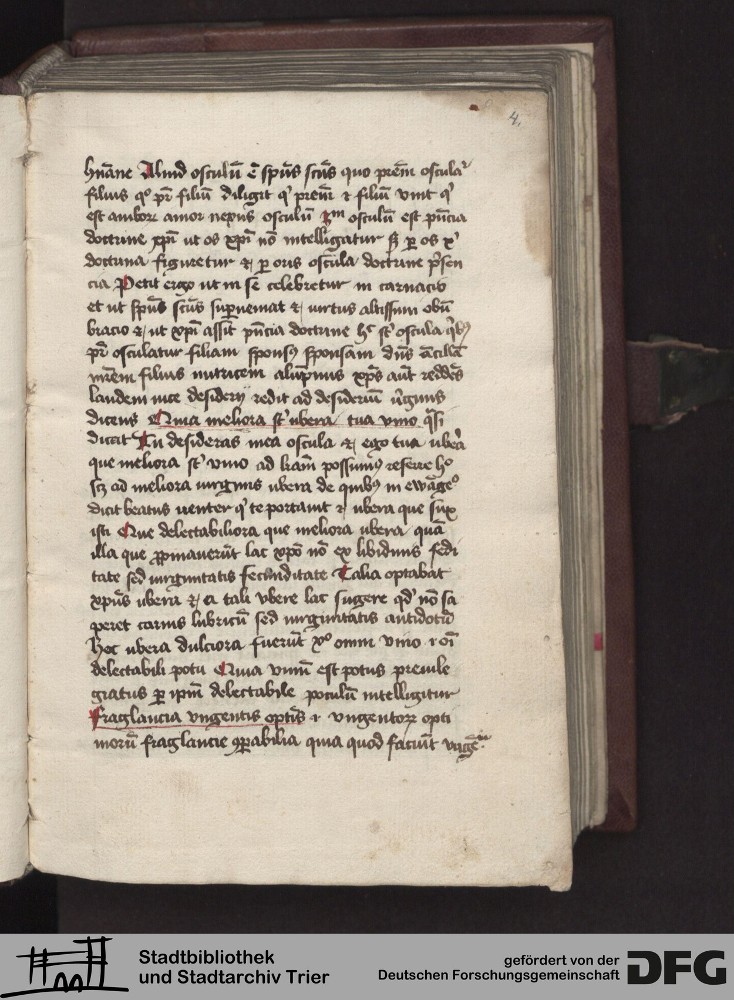 4.
hūane Aliud osculū ē spūs scūs quo prem osculat᷑
filius qͦ pr̄ filiū diligit qͥ prem ⁊ filiū vnit qͥ
est amborꝝ amor nexus osculū ꝫm osculū est pn̄cia
doctrine xpī ut os xpī nō intelligatur ꝫ ꝑ os xͥ
doctrina figuretur ⁊ ꝑ oris oscula doctrine p̄sen
cia Petit ergo ut in se celebretur in carnacio
et ut spūs scūs supueniat ⁊ uirtus altissimi obū
bracio ⁊ ut xpī assit pn̄cia doctrine hͨ st̄ oscula qͥbꝰ
pr̄ osculatur filiam sponsꝰ sponsam dn̄s ācillā
mr̄em filius nutricem alūpnus xpūs aūt reddēs
laudem uice desiderij redit ad desideriū uͥginis
dicens Quia meliora st̄ ubera tua vino qͣsi
dicat Tu desideras mea oscula ⁊ ego tua ubera
que meliora st̄ vino ad lr̄am possumꝰ referre hͦ
scꝫ ad meliora uirginis ubera de quibꝰ in ewāgeͦ
dicit beatus uenter qͥ te portauit ⁊ ubera que sux
isti Que delectabiliora que meliora ubera quā
illa que ꝓpinauerūt lac xpō nō ex libidinis fedi
tate sed uirginitatis fecūnditate Talia optabat
xpūs ubera ⁊ a tali vbere lac sugere qd nō sa
peret carnis lubricū sed uirginitatis antidotū
Hec ubera dulciora fuerūt xͦ omni vino ⁊ oī
delectabili potu Quia vinū est potus preuile
giatus ꝑ ipm̄ delectabile poculū intelligitur
Fraglancia vngentis optīs .i. vngentorꝝ opti
morū fraglancie ꝯꝑabilia quia quod faciūt
Stadtbibliothek
und Stadtarchiv Trier
gefördert von der
Deutschen Forschungsgemeinschaft
DFG